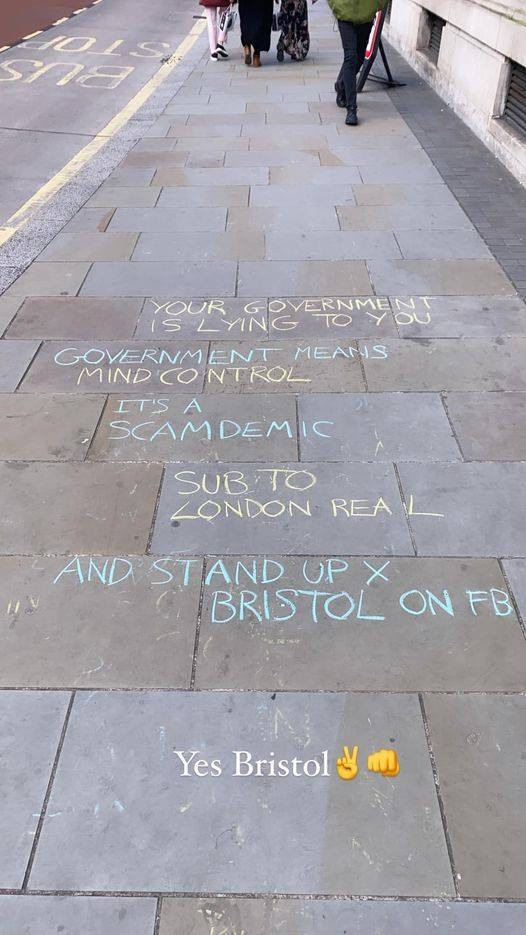 BUS
STOP
YOUR GOVERNMENT
IS LYING TO YOU
GOVERNMENT MEANS
MIND CONTROL
IT'S A
SCAMDEMIC
SUB TO
LONDON REAL
AND STAND UP X
BRISTOL ON FB
Yes Bristol✌️👊